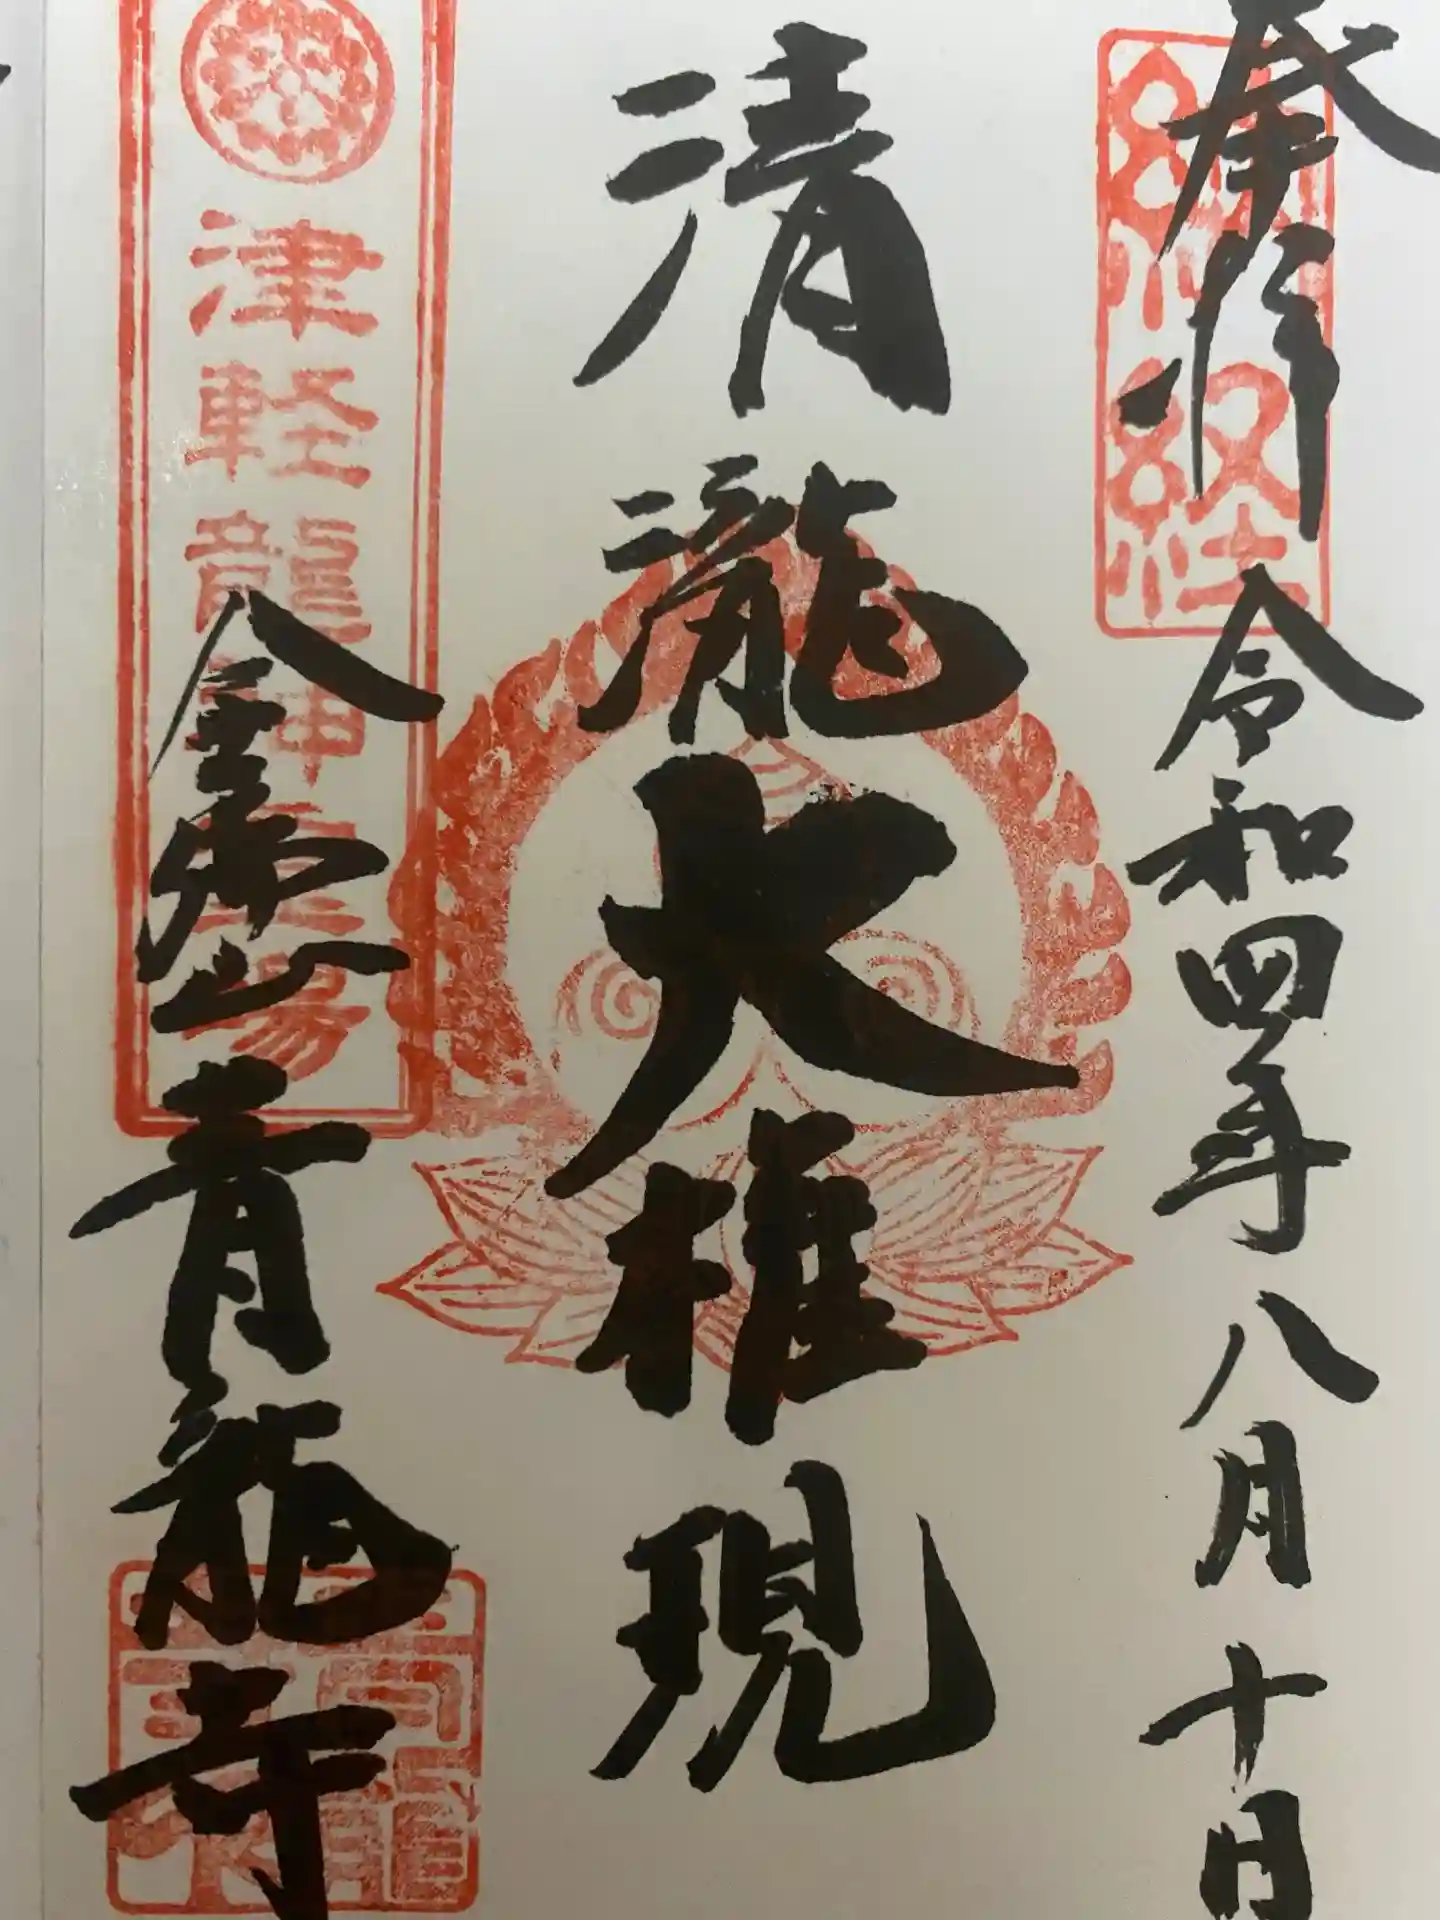 奉拝
令和四年八月十日
納経
清瀧大権現
津軽龍神霊場
青龍寺